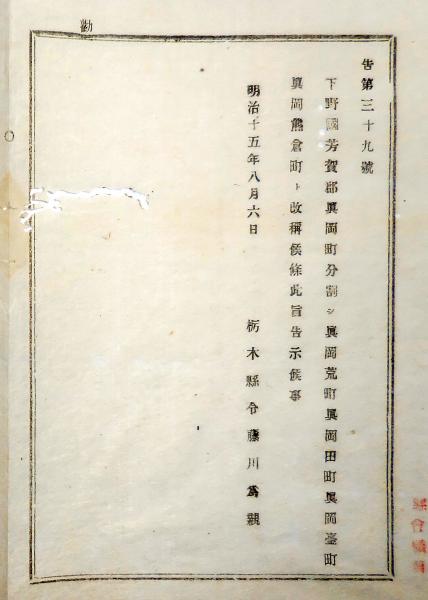 告第三十九號
下野國芳賀郡眞岡町分割シ眞岡荒町眞岡田町眞岡臺町
眞岡熊倉町ト改稱候條此旨告示候事
明治十五年八月六日
栃木縣令藤川爲親
勸